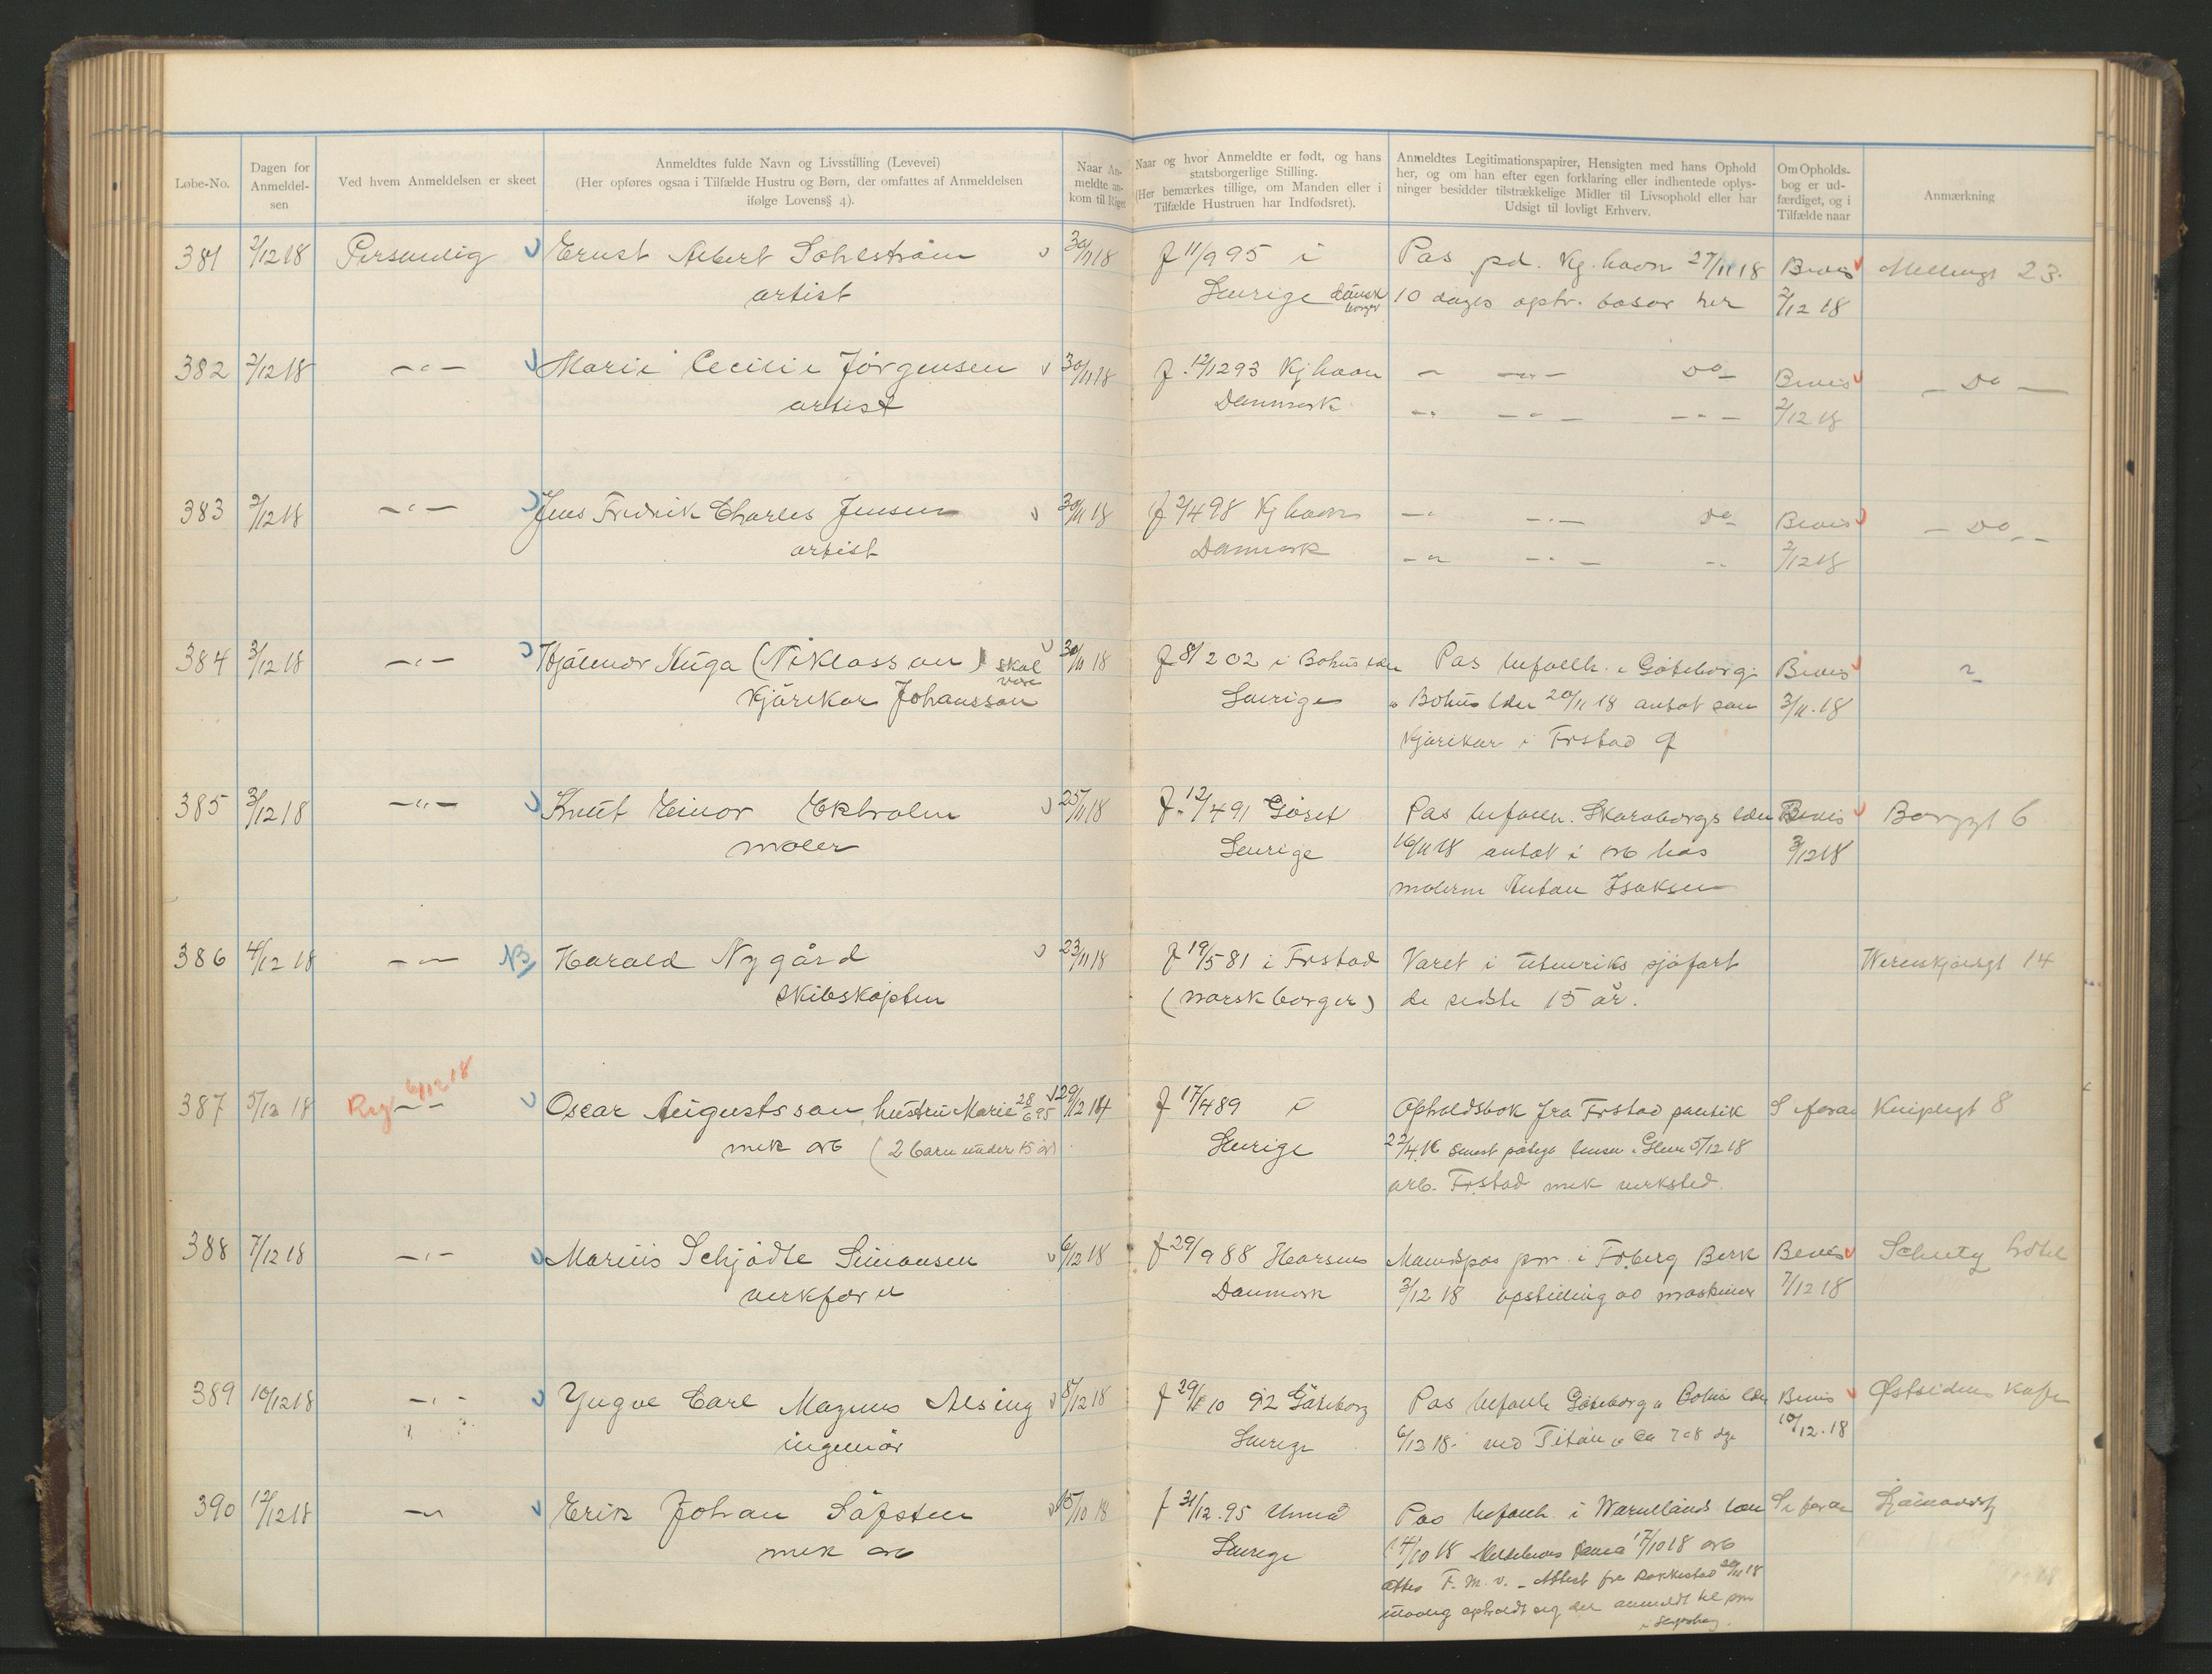 Løbe-No.
Dagen for Anmeldel-sen
Ved hvem Anmeldelsen er skeet
Anmeldtes fulde Navn og Livsstilling (Levevei)
(Her opføres ogsaa i Tilfælde Hustru og Børn, der omfattes af Anmeldelsen
ifølge Lovens § 4).
Naar An-meldte an-kom til Riget
Naar og hvor Anmeldte er født, og hans
statsborgerlige Stilling.
(Her bemærkes tillige, om Manden eller i
Tilfælde Hustruen har Indfødsret).
Anmeldtes Legitimationspapirer, Hensigten med hans Ophold
her, og om han efter egen forklaring eller indhentede oplys-
ninger besidder tilstrækkelige Midler til Livsophold eller har
Udsigt til lovligt Erhverv.
Om Opholds-bog er ud-færdiget, og i Tilfælde naar
Anmærkning
381 2/12 18 Personlig Ernst Albert Sohlström 30/11 18 f 11/9 95 i Pas pd. Kg.havn 27/11 18 Bevis
artist Sverige dansk borger 10 dages optr. basar her 2/12 18
382 2/12 18 —"— Marie Cecilie Jörgensen 30/11 18 f. 12/12 93 Kjhavn — —"— Do Bevis — Do —
artist Danmark 2/12 18
383 2/12 18 —"— Jens Fredrik Charles Jensen 30/11 18 f 2/4 98 Kjhavn —"— —"— Do Bevis — Do —
artist Danmark 2/12 18
384 3/12 18 —"— Hjalmar Huga (Niklasson) skal være 30/11 18 f 8/2 02 i Bohuslän Pas i Göteborg Bevis
Kjörekar Johansson Sverige o Bohuslän 20/11 18 antat som 3/11.18
Kjörekar i Frstad
385 3/12 18 —"— Knut Einar Ekholm 25/11 18 f. 12/4 91 Sköraborgs län Bevis Borggt 6
maler Sverige 16/11 18 antat i arb hos 3/12 18
malerm Anton Isaksen
386 4/12 18 —"— NB Harald Nygård 23/11 18 f 19/5 81 i Frstad Varet i utenriks sjøfart Werenskjoldgt 14
skibskaptein (norsk borger) de sidste 15 år.
387 5/12 18 Reg 6/12 18 —"— Oscar Augustsson, hustru Marie 28/6 95 29/12 14 f 17/4 89 i Opholdsbok fra Frstad politik Se foran Kniplegt 8
mek arb (2 barn under 15 år) Sverige 22/4 18 senest i Glem 5/12 18
arb. Frstad mek verksted.
388 7/12 18 —"— Marius Schjödte Simonsen 6/12 18 f 29/9 88 Horsens i Frberg Bevis Schultz hotel
verkförer Danmark 3/12 18 opstilling av maskiner 7/12 18
389 10/12 18 —"— Yngve Carl Magnus Alsing 8/12 18 f 29/10 92 Göteborg Pas Göteborg o Bohus län Bevis Østsidens kafe
ingeniør Sverige 6/12 18. ved Titan ca 7 a 8 dge 10/12.18
390 12/12 18 —"— Erik Johan Säfsten 15/10 18 f 31/12.95 Umeå Pas i Warmlands län Se foran
mek arb Sverige 14/10 18 17/10 18 arb
F. M. V. – Attest fra Rakkestad 20/11 18
opholdt sig der anmeldt til